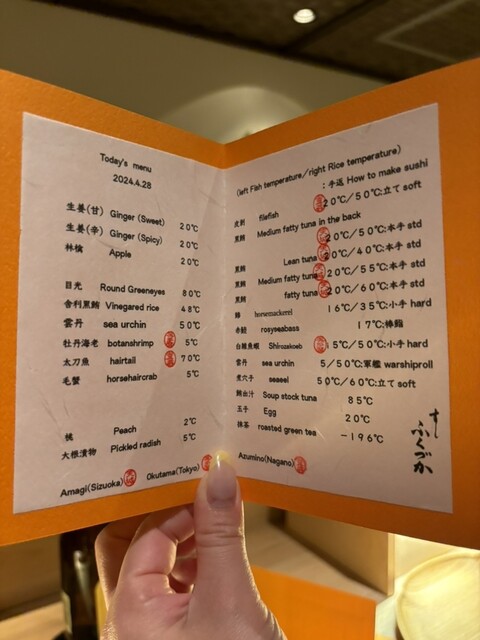 Today's menu
2024.4.28
生姜(甘) Ginger (Sweet) 20℃
生姜(辛) Ginger (Spicy) 20℃
林檎 Apple 20℃
目光 Round Greeneyes 80℃
舎利黒鮪 Vinegared rice 48℃
雲丹 sea urchin 50℃
牡丹海老 botanshrimp 5℃
太刀魚 hairtail 70℃
毛蟹 horsehaircrab 5℃
桃 Peach 2℃
大根漬物 Pickled radish 5℃
Amagi(Sizuoka) Okutama(Tokyo)
(left Fish temperature/right Rice temperature)
:手返 How to make sushi
皮剥 filefish 20℃/50℃:立て soft
黒鮪 Medium fatty tuna in the back
20℃/50℃:本手 std
黒鮪 Lean tuna 20℃/40℃:本手 std
黒鮪 Medium fatty tuna 20℃/55℃:本手 std
黒鮪 fatty tuna 20℃/60℃:本手 std
horsemackerel 16℃/35℃:小手 hard
赤鯥 rosyseabass 17℃:棒鮨
白鱚魚蝦 Shirozakoeb 5℃/50℃:小手 hard
雲丹 sea urchin 5/50℃:軍艦 warshiproll
煮穴子 seaeel 50℃/60℃:立て soft
鮪出汁 Soup stock tuna 85℃
玉子 Egg 20℃
抹茶 roasted green tea -196℃
Azumino(Nagano)
すし
ふくづか